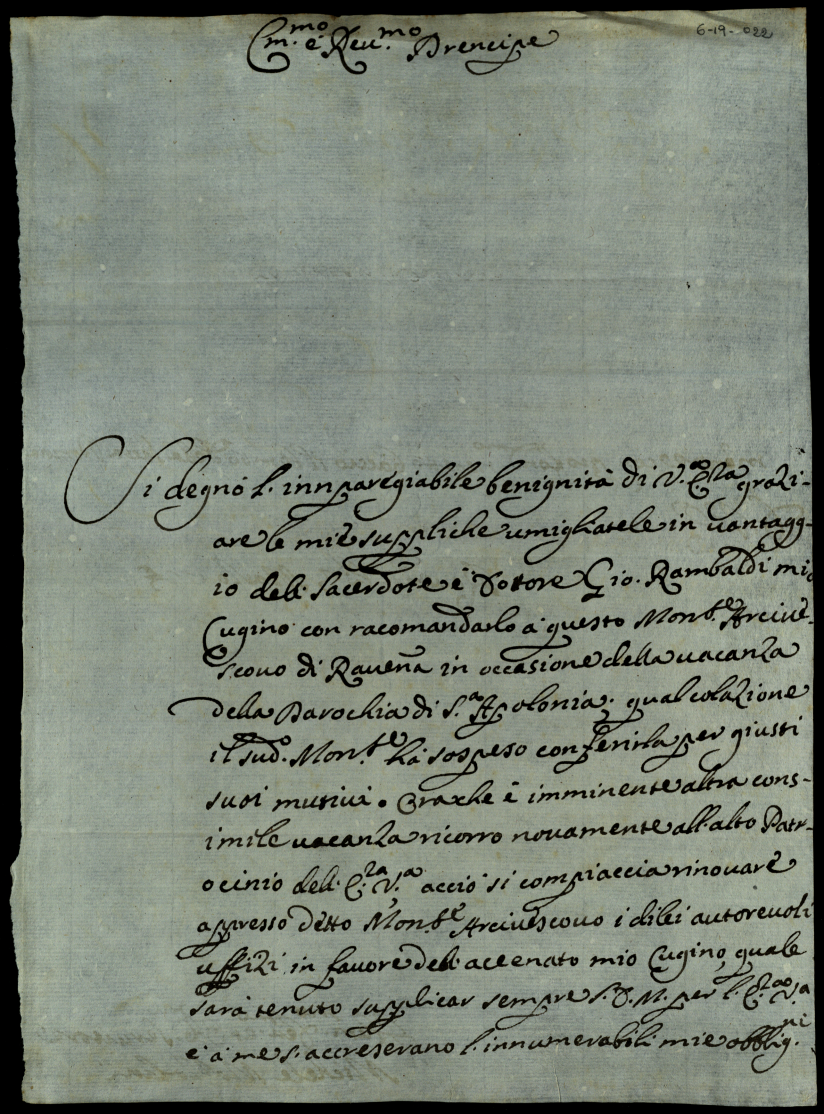 6-19-022
Em.mo e Reu.mo Prencipe
Si degnò l'innparegiabile benignità di V.a E.za grazi-
are le mie suppliche umigliatele in vantagg-
io del Sacerdote e Dottore Gio. Rambaldi mio
Cugino con racomandarlo à questo Mons.re Arciue-
scouo di Raueña in occasione della uacanza
della Parochia di S.a Apolonia; qual colazione
il sud.o Mons.re hà sospeso conferirla per giusti
suoi mutiui. Ora che è imminente altra cons-
imile uacanza ricorro nouamente all'alto Patr-
ocinio dell'E.za V.a acciò si compiaccia rinouare
appresso detto Mons.re Arciuescouo i di lei autoreuoli
uffizi in fauore dell'accenato mio Cugino, quale
sarà tenuto supplicar sempre S. D. M. per l'E.za V.a
e à me s'accreserano l'innumerabili mie obblig.ni